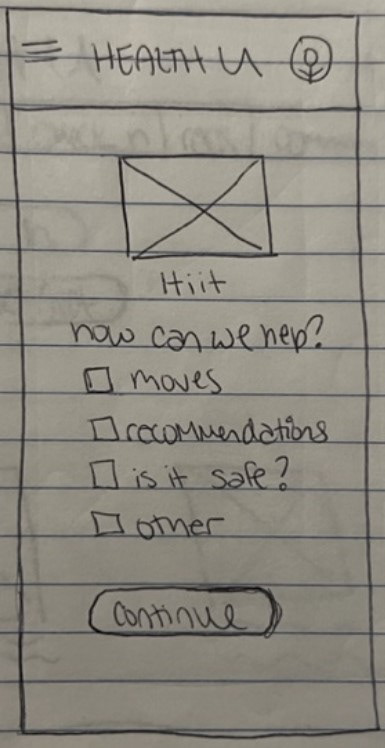 HEALTH U
Hiit
how can we help?
moves
recommendations
is it safe?
other
continue